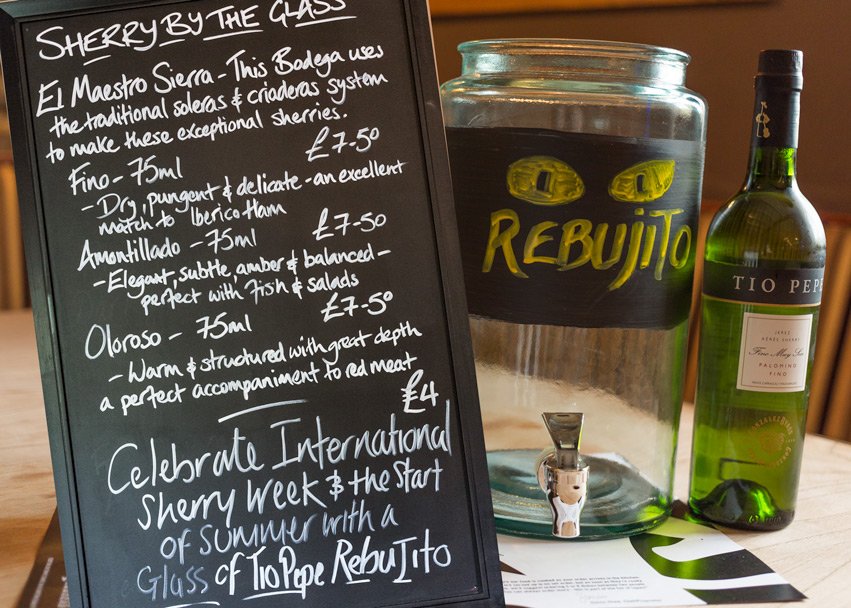 SHERRY BY THE GLASS
El Maestro Sierra - This Bodega uses
the traditional soleras & criaderas system
to make these exceptional sherries.
Fino - 75ml £7.50
- Dry, pungent & delicate - an excellent
match to Iberico Ham
Amontillado - 75ml £7.50
- Elegant, subtle, amber & balanced -
perfect with fish & salads
Oloroso - 75ml £7.50
- Warm & structured with great depth
a perfect accompaniment to red meat
£4
Celebrate International
Sherry Week & the Start
of Summer with a
Glass of Tio Pepe Rebujito
REBUJITO
TIO PEPE
JEREZ
XÉRÈS SHERRY
Fino Muy Seco
PALOMINO
FINO